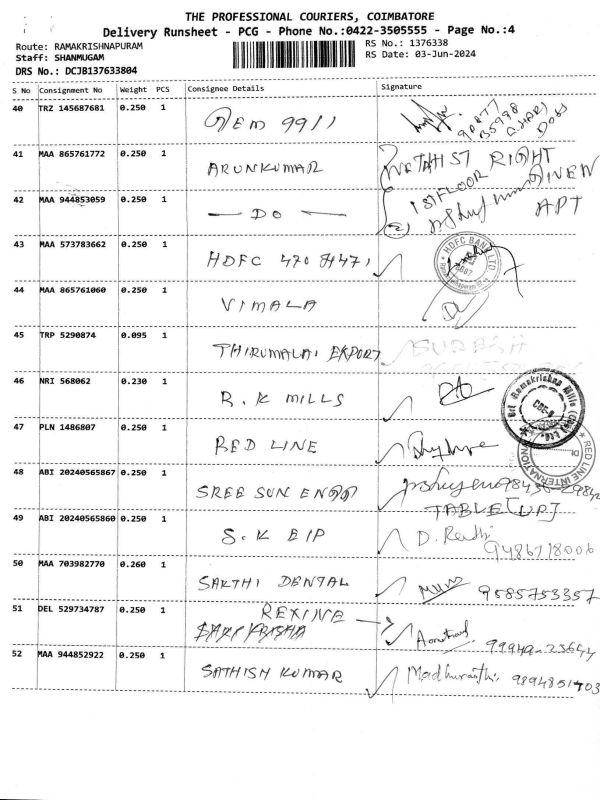 THE PROFESSIONAL COURIERS, COIMBATORE
Delivery Runsheet - PCG - Phone No.:0422-3505555 - Page No.:4
Route: RAMAKRISHNAPURAM
RS No.: 1376338
Staff: SHANMUGAM
RS Date: 03-Jun-2024
DRS No.: DCJB137633804
S No Consignment No Weight PCS Consignee Details Signature
40 TRZ 145687681 0.250 1 GEM 9911
41 MAA 865761772 0.250 1 ARUNKUMAR RIGHT
1st FLOOR GIVEN
42 MAA 944853059 0.250 1 — DO — APT
43 MAA 573783662 0.250 1 HDFC HDFC BANK LTD
44 MAA 865761060 0.250 1 VIMALA
45 TRP 5290874 0.095 1 THIRUMALAI EXPORT SURESH
46 NRI 568062 0.230 1 R. K MILLS Sri Ramakrishna Mills
47 PLN 1486807 0.250 1 RED LINE RED LINE INTERNATIONAL
48 ABI 20240565867 0.250 1 SREE SUN ENGG
TABLE [UP]
49 ABI 20240565860 0.250 1 S. K EIP D.
9486718006
50 MAA 703982770 0.260 1 SAKTHI DENTAL 9585753357
51 DEL 529734787 0.250 1 REXINE
52 MAA 944852922 0.250 1 SATHISH KUMAR